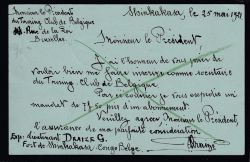 Monsieur le Président
du Touring Club de Belgique
Rue de la Loi
Bruxelles
Shinkakasa, le 25 mai 1911
Monsieur le Président
J'ai l'honneur de vous prier de
vouloir bien me faire inscrire comme sociétaire
du Touring Club de Belgique.
Par ce courrier je vous expédie un
mandat de prix d'un abonnement.
Veuillez agréer Monsieur le Président,
l'assurance de ma parfaite considération
Exp: Lieutenant Draize G.
Fort de Shinkakasa. Congo Belge.